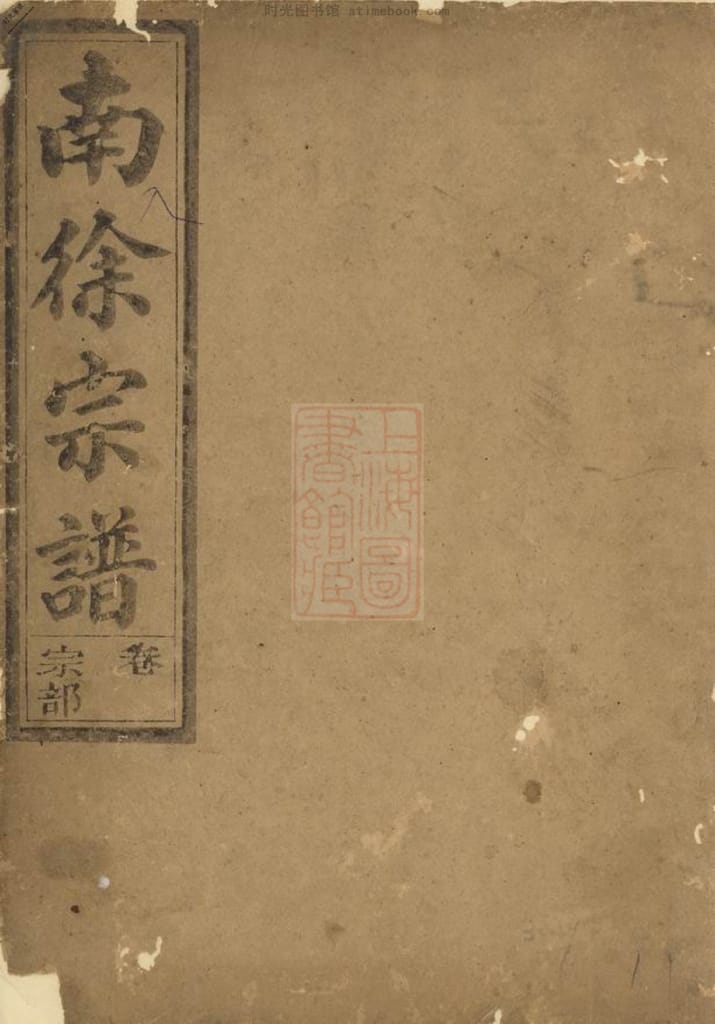 时光图书馆 atimebook.com
南徐宗譜
卷
宗部
上海圖
書館藏